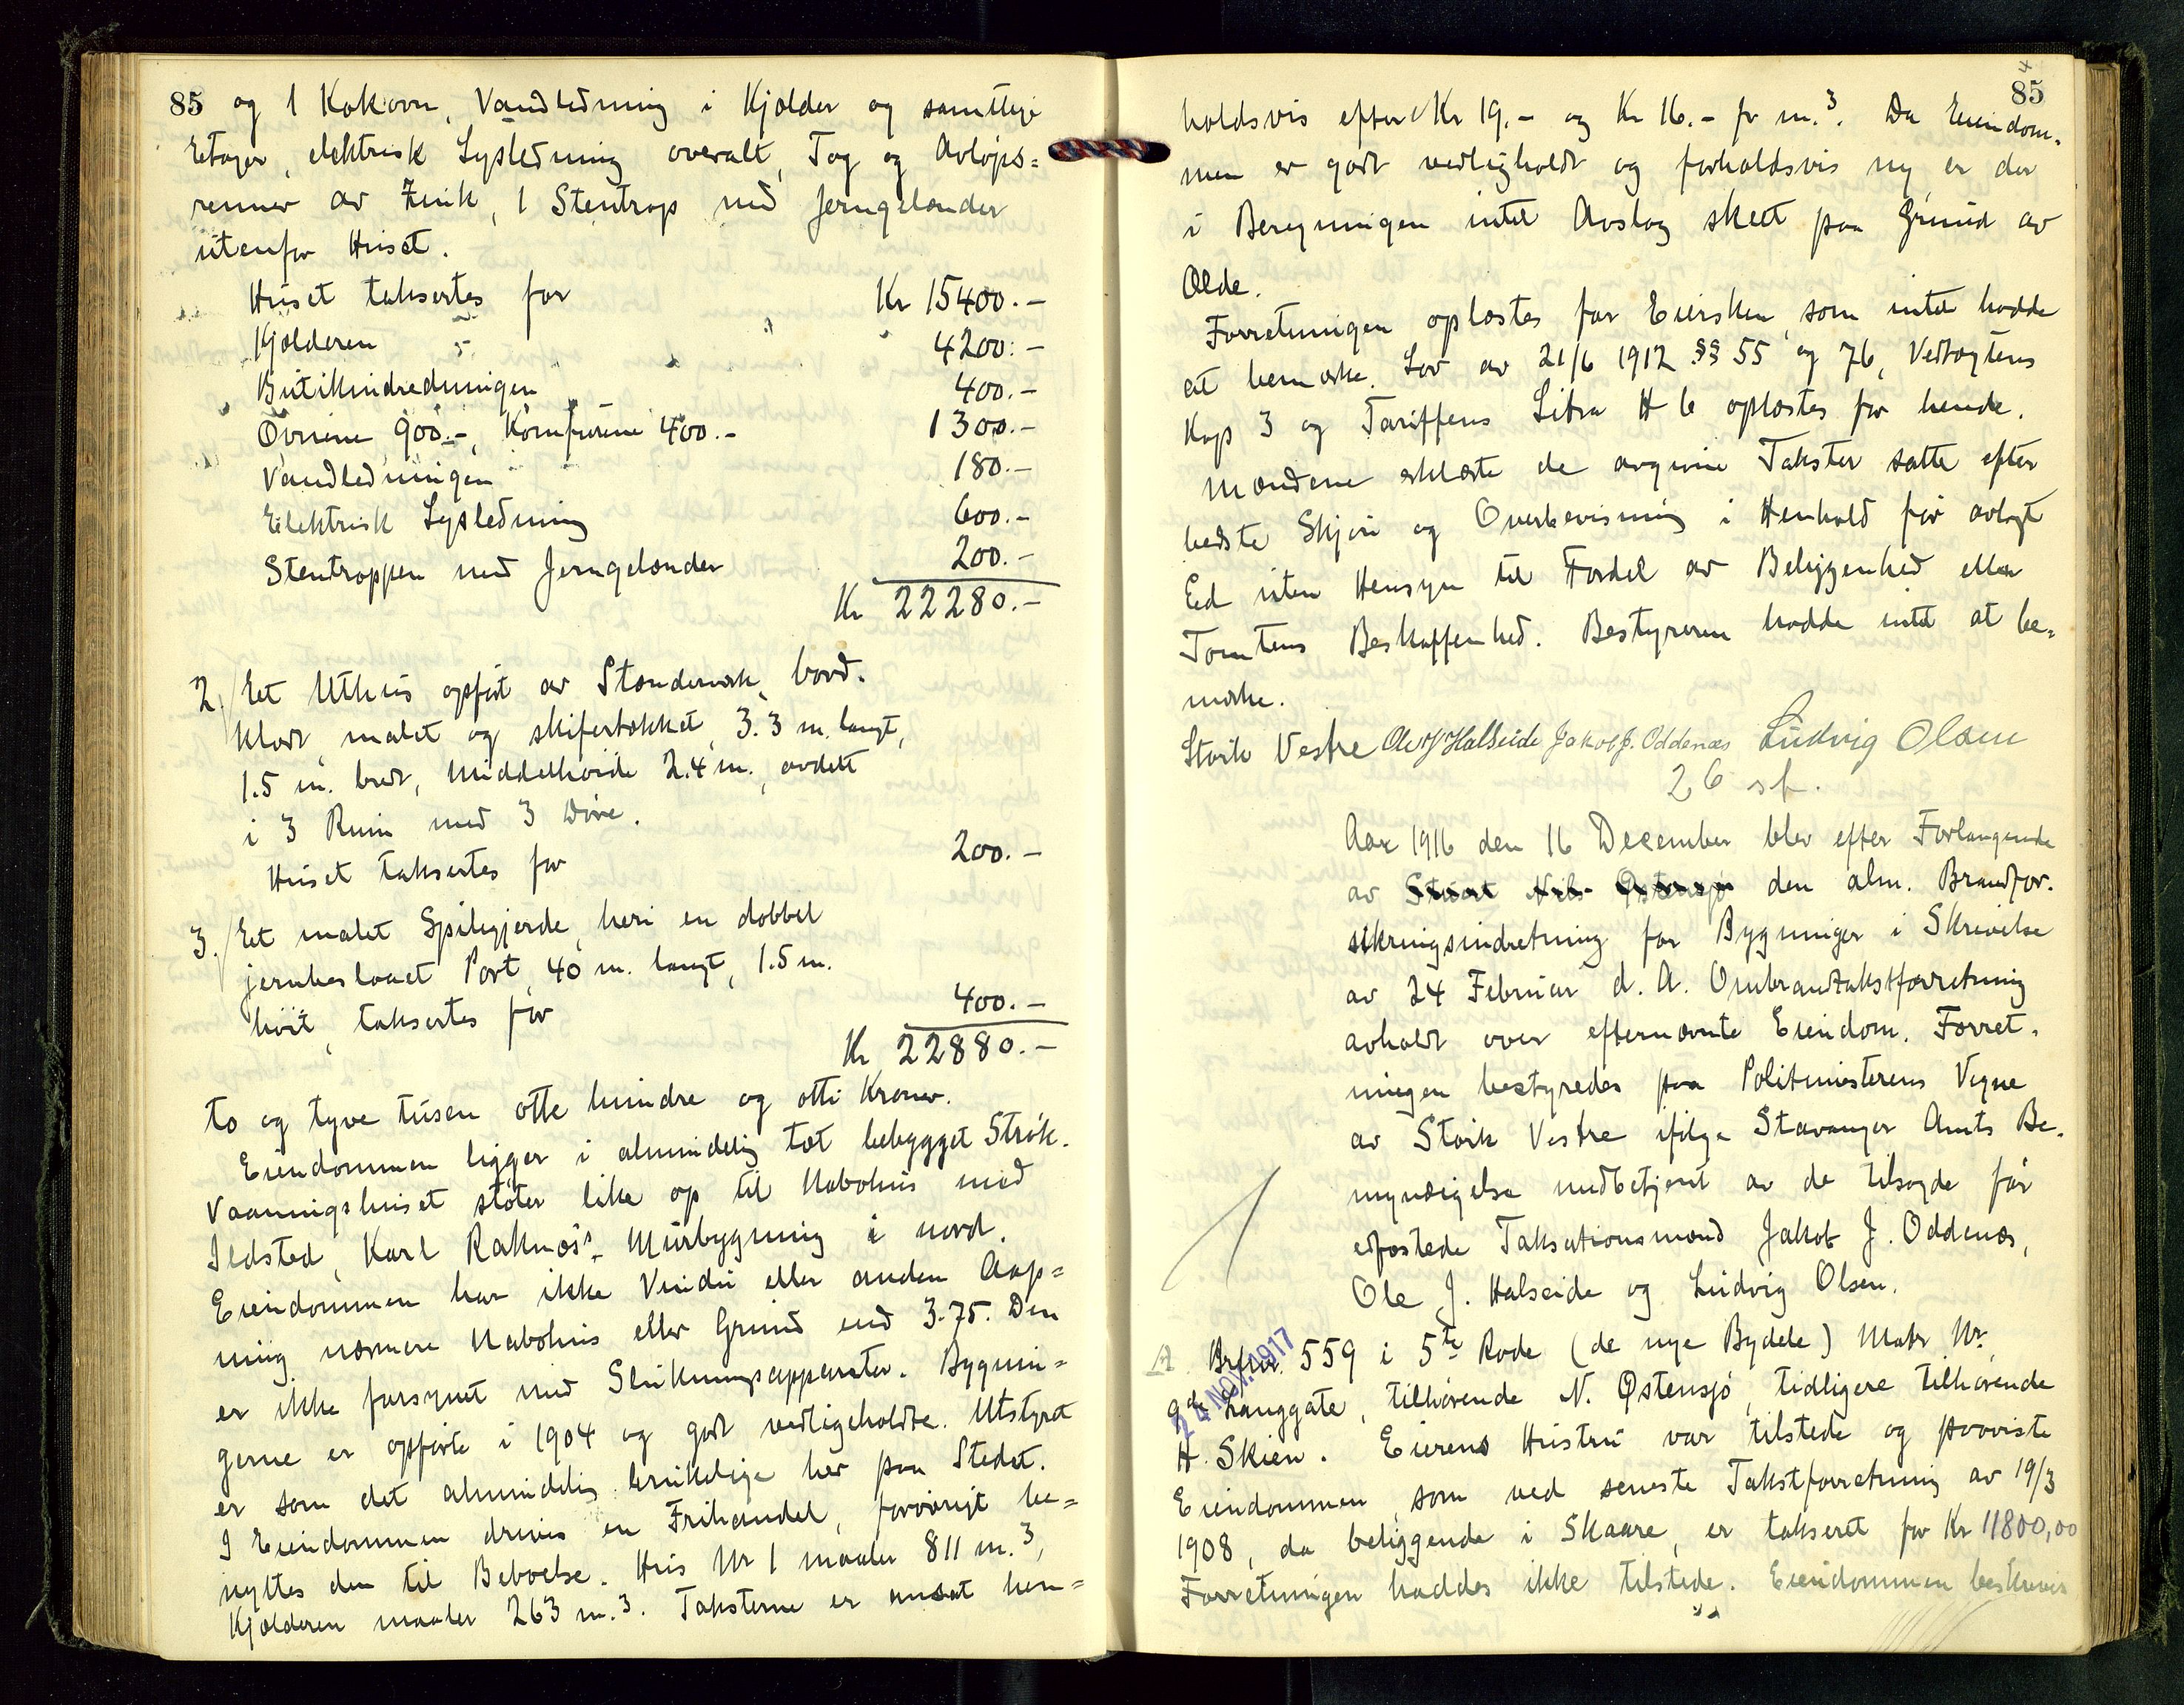 85 og 1 Kokovn, Vandledning i Kjælder og samtlige
Etager, elektrisk Lysledning overalt, Tag og Avløps=
renner av Zink, 1 Stentrap med Jerngelænder
utenfor Huset.
Huset taksertes for Kr 15400.-
Kjælderen 4200.-
Butikindredningen 400.-
Ovnene 900.-, Komfurene 400.- 1300.-
Vandledningen 180.-
Elektrisk Lysledning 600.-
Stentrappen med Jerngelænder 200.-
Kr 22280.-
2./ Et Uthus opført av Stænderverk, bord-
klædt, malet og skifertækket, 3.3 m. langt,
1.5 m. bredt, Middelhøide 2.4 m., avdelt
i 3 Rum med 3 Døre.
Huset taksertes for 200.-
3./ Et malet Spilegjerde, heri en dobbel
jernbeslaaet Port, 40 m. langt, 1.5 m.
høit, taksertes for 400.-
Kr 22880.-
to og tyve tusen otte hundre og otti Kroner.
Eiendommen ligger i almindelig tæt bebygget Strøk.
Vaaningshuset støter like op til Nabohus med
Ildsted, Karl Raknæs's Murbygning i nord.
Eiendommen har ikke Vindu eller anden Aap=
ning nærmere Nabohus eller Grund end 3.75. Den
er ikke forsynet med Slukningsapparater. Bygnin=
gerne er opførte i 1904 og godt vedligeholdte. Utstyret
er som det almindelig brukelige her paa Stedet.
I Eiendommen drives en Frihandel, forøvrigt be=
nyttes den til Beboelse. Hus Nr 1 maaler 811 m.³,
Kjælderen maaler 263 m.³. Taksterne er ansat hen=
85
holdsvis efter Kr 19.- og Kr 16.- pr m.³. Da Eiendom-
men er godt vedligeholdt og forholdsvis ny, er der
i Beregningen intet Avslag skeet paa Grund av
Ælde.
Forretningen oplæstes for Eiersken, som intet hadde
at bemærke. Lov av 21/6 1912 §§ 55 og 76, Vedtægtens
Kap 3 og Tariffens Litra H b oplæstes for hende.
Mændene erklærte de avgivne Takster satte efter
bedste Skjøn og Overbevisning i Henhold før avlagt
Ed uten Hensyn til Fordel av Beliggenhed eller
Tomtens Beskaffenhed. Bestyreren hadde intet at be-
mærke.
Størk Vestre Ole J Halseide Jakob J. Oddenæs Ludvig Olsen
26 sf.
Aar 1916 den 16 December blev efter Forlangende
av den alm. Brandfor-
sikringsindretning for Bygninger i Skrivelse
av 24 Februar d. A. Ombrandtakstforretning
avholdt over efternævnte Eiendom. Forret-
ningen bestyredes paa Politimesterens Vegne
av Størk Vestre ifølge Stavanger Amts Be-
myndigelse medbetjent av de tilsagde før
edfæstede Taksationsmænd Jakob J. Oddenæs,
Ole J. Halseide og Ludvig Olsen.
Brfnr. 559 i 5te Rode (de nye Bydele) Matr Nr.
24 NOV. 1917
9de Langgate, tilhørende N. Østensjø, tidligere tilhørende
H. Skien. Eierens Hustru var tilstede og paaviste
Eiendommen, som ved seneste Takstforretning av 19/3
1908, da beliggende i Skaare, er takseret for Kr 11800,00
Forretningen haddes ikke tilstede. Eiendommen beskrives